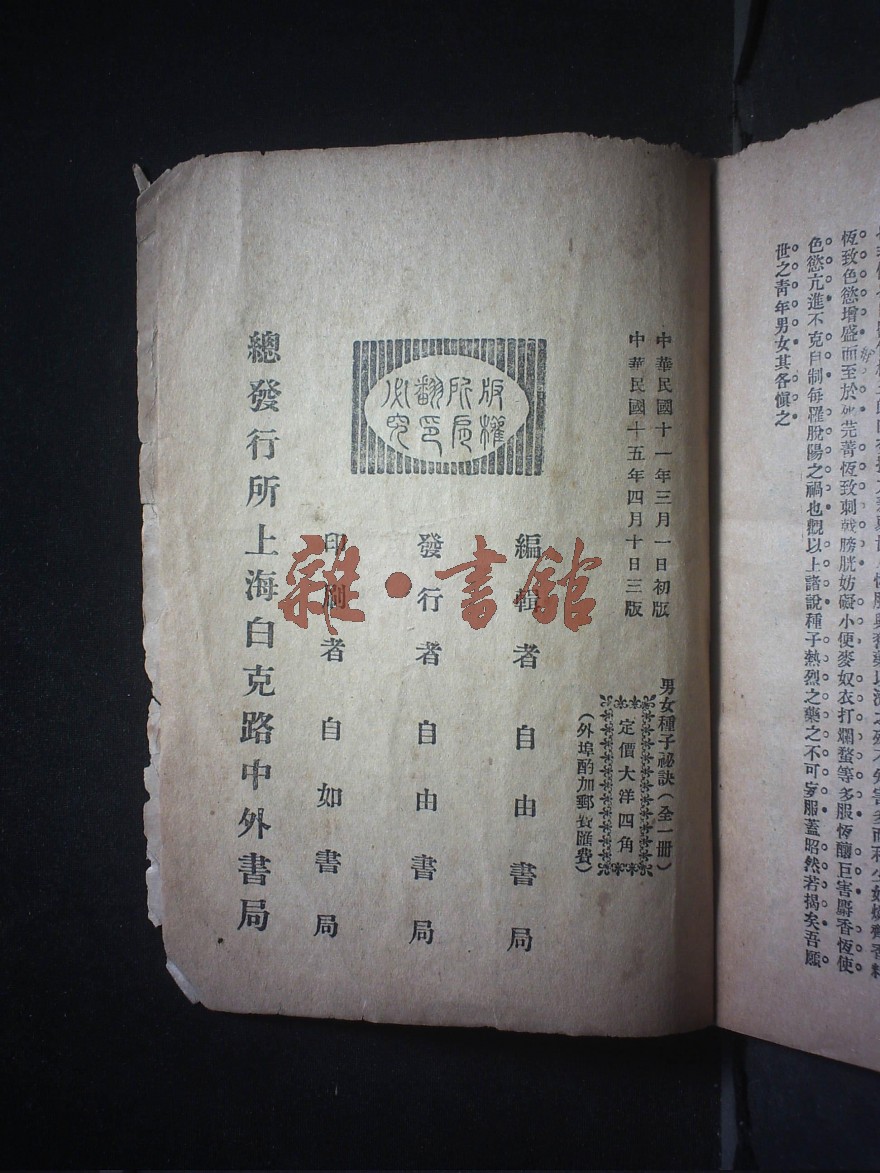 恆致色慾增盛而至於死芫菁恆致刺戟膀胱妨礙小便麥奴衣打爛螯等多服恆釀巨害麝香恆使
色慾亢進不克自制每罹脫陽之禍也觀以上諸說種子熱烈之藥之不可妄服蓋昭然若揭矣吾願
世之青年男女其各慎之
中華民國十一年三月一日初版
中華民國十五年四月十日三版
男女種子祕訣（全一冊）
定價大洋四角
（外埠酌加郵費匯費）
版權所有翻印必究
編輯者自由書局
發行者自由書局
印刷者自如書局
總發行所上海白克路中外書局
雜·書館